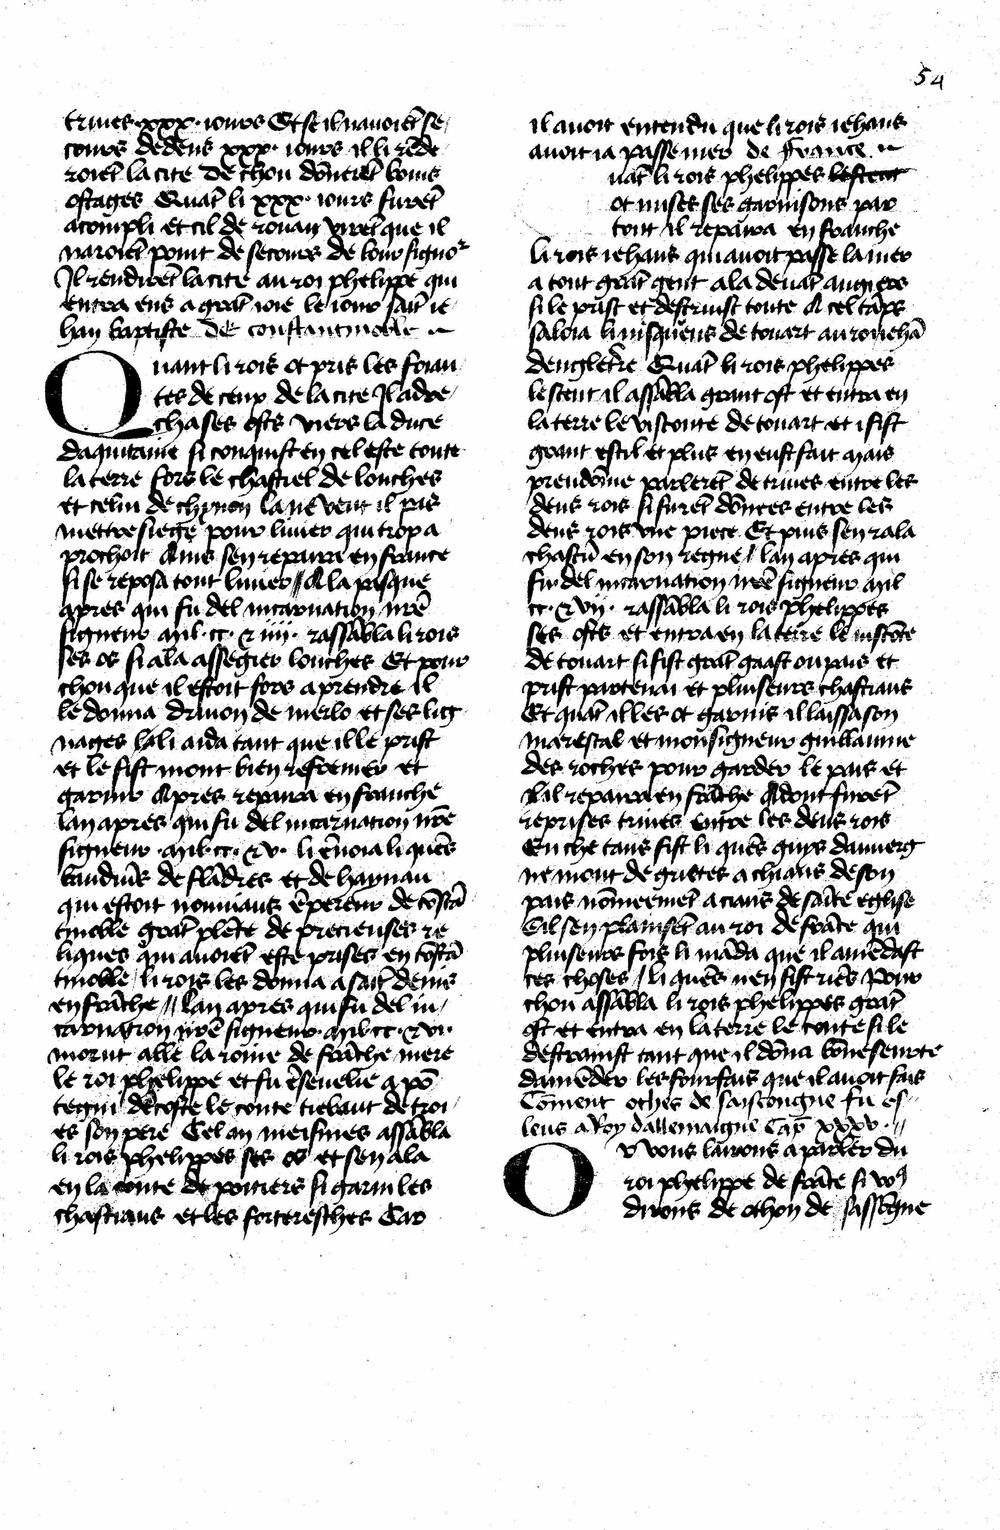 54
triues .xxx. iours Et se il nauoiēt se
cours dedens xxx. iours il li rēde
roiēt la cite De chou dōnerēt bons
ostages Quāt li xxx. iours furēt
acompli et cil de rouan virēt que il
naroiēt point de secours de lour signor
Il rendirēt la cite au roi phelippe qui
entra ens a grāt ioie le iour saīt ie
han baptiste De constantinoble
Quant li rois ot pris les firan
tes de ceux de la cite Il adre
cha ses osts viers la duce
daquitaine si conquist en cel este toute
la terre fors le chastiel de louches
et celui de chynon la ne veut il pas
mettre siege pour liuier qui trop a
prochoit Ains sen repaira en france
si se reposa tout liuier // A la pasque
apres qui fu del incarnation nrē
signeur .mil. cc. & iiii. rassābla li rois
ses os si ala assegier louches Et pour
chou que il estoit fors a prendre il
le donna driuon de merlo et ses lig
nages lali aida tant que il le prist
et le fist mout bien refremer et
garnir Apres repaira en franche
lan apres qui fu del incarnation nrē
signeur .mil. cc. & v. li ēuoia li quēs
bauduīs de flādres et de haynau
qui estoit nouuiaus ēpereur de cōstā
tinoble grāt plēte de precieuses re
liques qui auoiēt este prises en cōstā
tinoble / li rois les donna a saīt denis
en frāche // Lan apres qui fu del in
carnation nrē signeur .mil. cc. & vi.
morut alle la roine de frāche mere
le roi phelippe et fu ēseuelie a pō
tegni decoste le conte tiebaut de troi
es son pere Cel an meismes assābla
li rois phelippes ses os et sen ala
en la conte de poitiers si garni les
chastiaus et les forteresches Car
il auoit entendu que li rois iehans
auoit ia passe mer de france
uāt li rois phelippes
ot mises ses garnisons par
tout il repaira en franche
li rois iehans qui auoit passe la mer
a tout grāt gent ala deuāt angiers
si le prist et destruist toute A cel tāps
saloia li visquens de touart au roi iehā
dengletre Quāt li rois phelippes
le sceut il assābla grant ost et entra en
la terre le visconte de touart et i fist
grant escil et plus en eust fait mais
preudōme parlerēt de triues entre les
deus rois si furēt dōnees entre les
deus rois vne piece Et puis sen rala
chascū en son regne / lan apres qui
fu del incarnation nrē signeur mil
cc. & vii. rassābla li rois phelippes
ses osts et entra en la terre le viscōte
de touart si fist grāt gaast ou pais et
prist partenai et pluiseurs chastiaus
Et quāt il les ot garnis il laissa son
marescal et monsigneur guillaume
des roches pour garder le pais et
lal repaira en frāche Adont furēt
reprises triues entre les deus rois
En che tans fist li quēs guys dauuerg
ne mout de grietes a chiaus de son
pais nōmeemēt a ciaus de saīte eglise
Cil sen plainsēt au roi de frāce qui
pluiseurs fois li māda que il amēdast
ces choses / li quēs nen fist riēs Pour
chou assābla li rois phelippes grāt
ost et entra en la terre le conte si le
destrainst tant que il dōna bōne seurte
damēder les fourfais que il auoit fais
Cōment othes de saiscongne fu es
leus a Roy dallemaigne Cap̄ xxxv.
Ou vous lairons a parler du
roi phelippe de frāce si vo9
dirons de othon de sassōgne